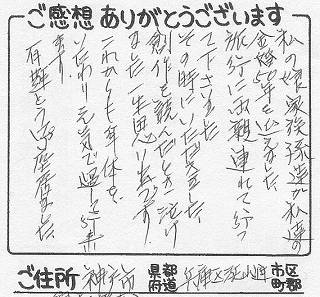 ご感想 ありがとうございます
私の娘家族孫達が私達の
金婚50年を迎えました
旅行にお連れて行っ
て下さいました
その時にいただきました
創作を読んだとき泣け
ました一生思い出です。
これからも身体を
いたわり元気で過して行き
ます。
有難とう御座居ました
ご住所 神戸市 都道府県 兵庫区 市区町郡